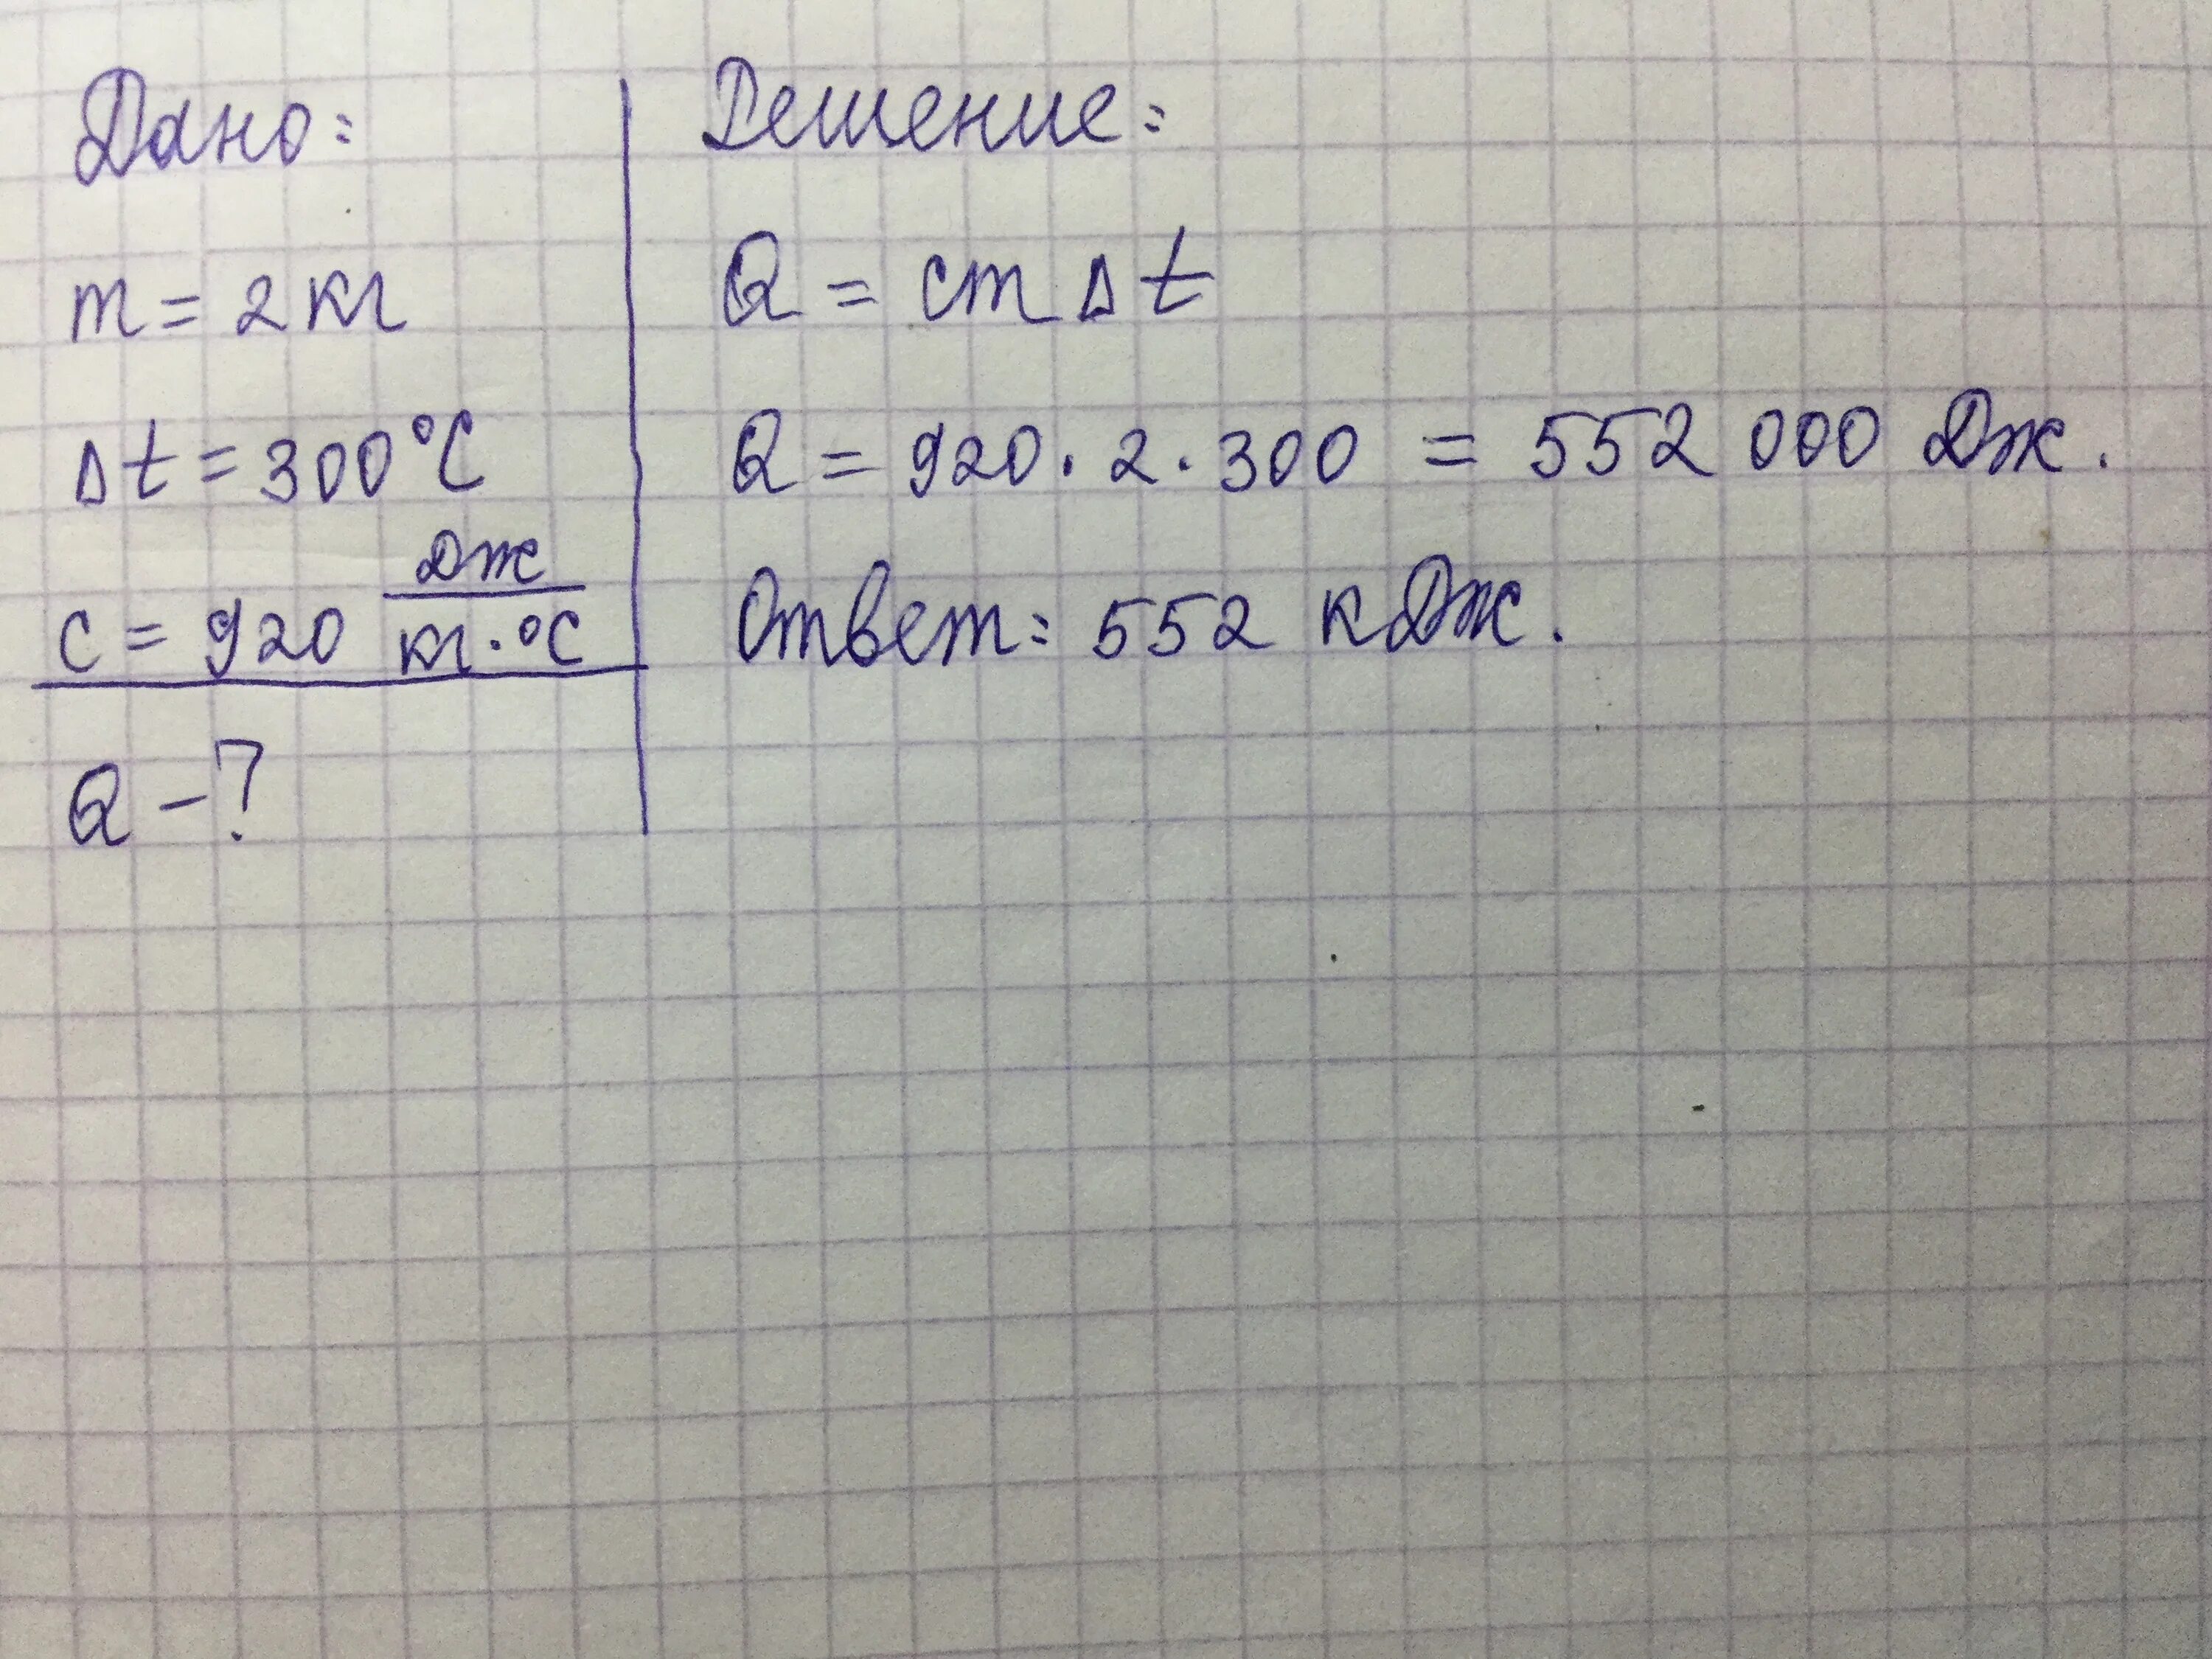 Дано:
m = 2 кг
Δt = 300 °C
c = 920 Дж / кг·°C
Q – ?
Решение:
Q = cmΔt
Q = 920 · 2 · 300 = 552 000 Дж.
Ответ: 552 кДж.